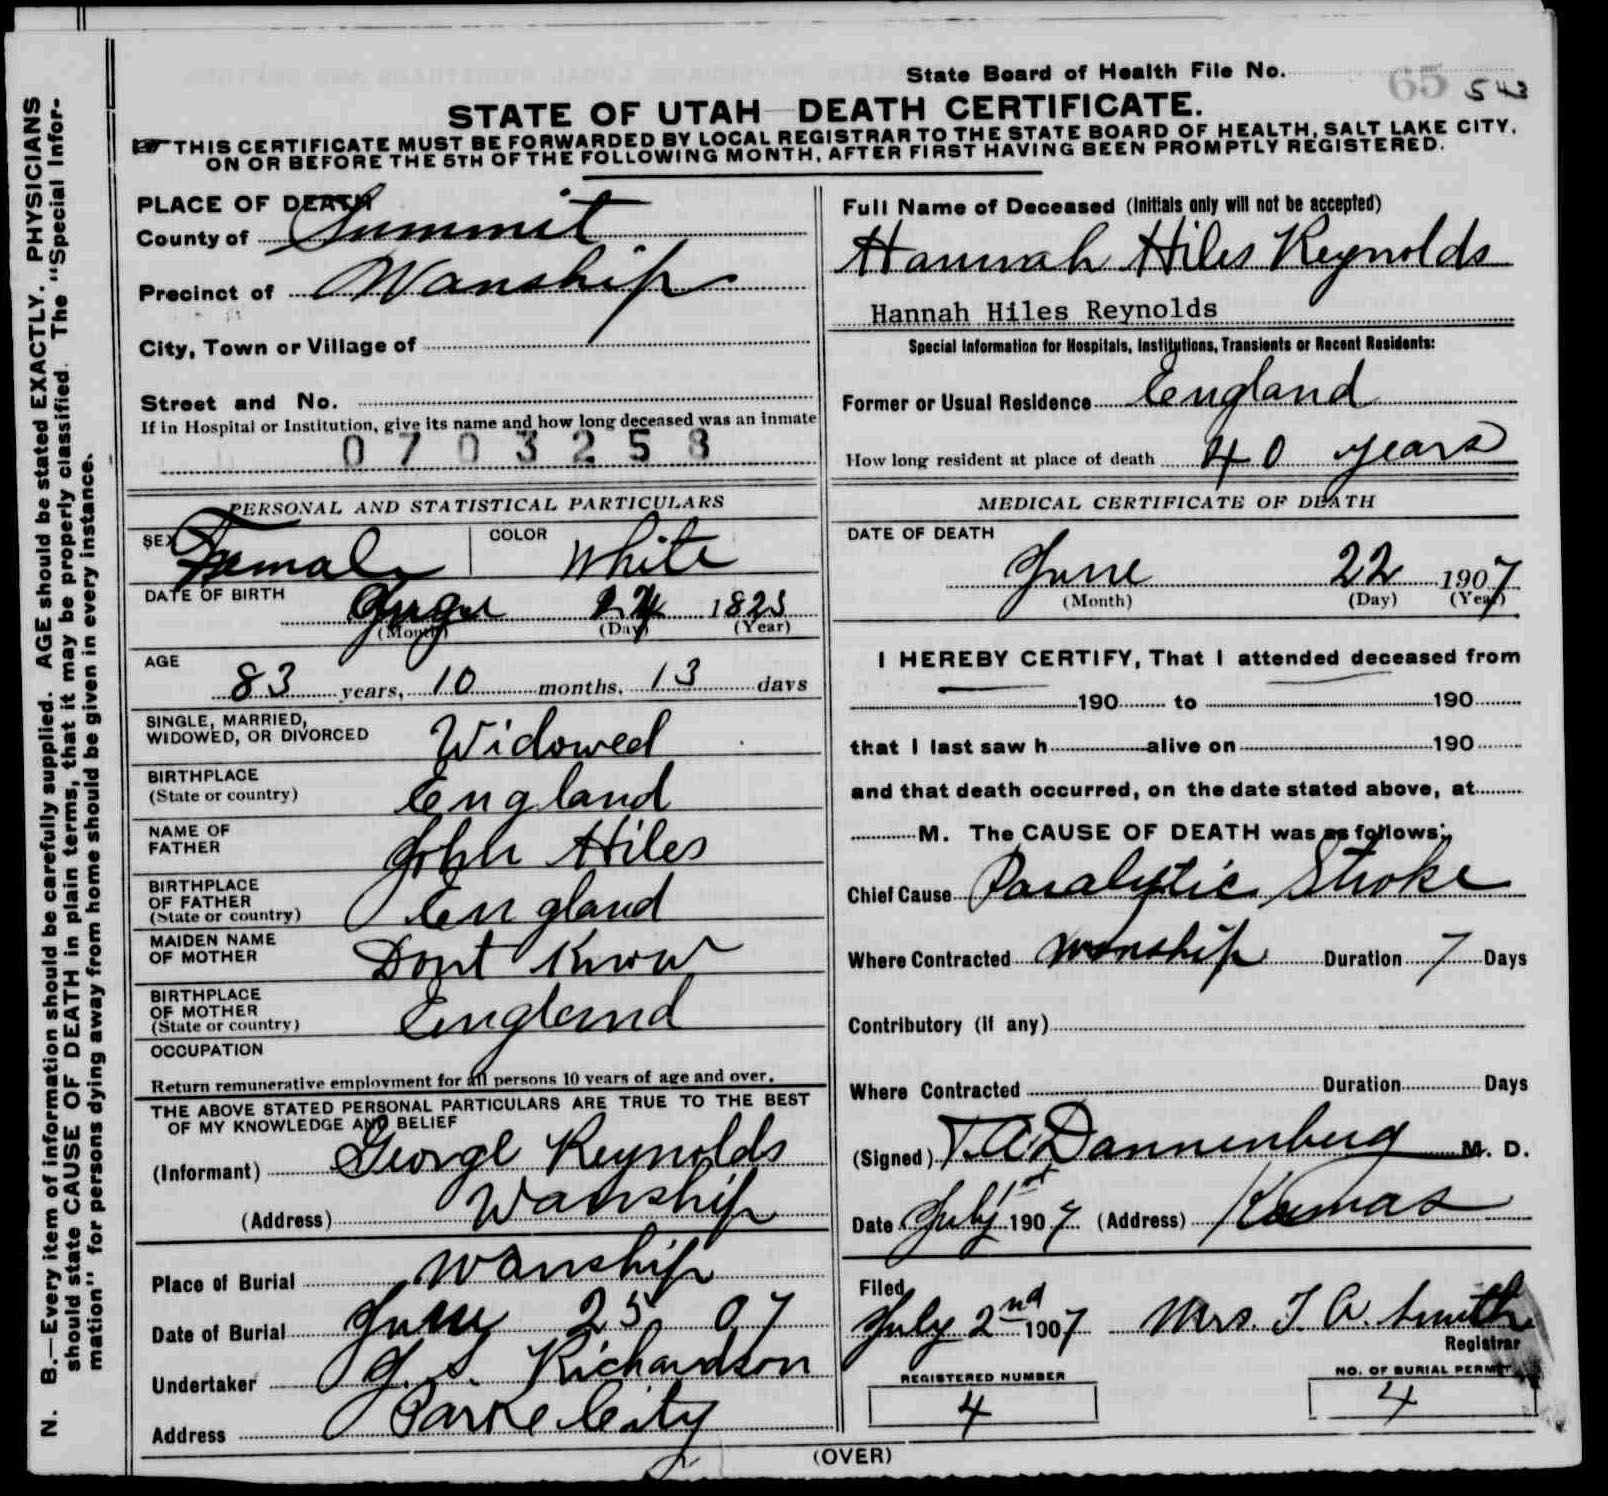 State Board of Health File No. 65 543
STATE OF UTAH—DEATH CERTIFICATE.
THIS CERTIFICATE MUST BE FORWARDED BY LOCAL REGISTRAR TO THE STATE BOARD OF HEALTH, SALT LAKE CITY,
ON OR BEFORE THE 5TH OF THE FOLLOWING MONTH, AFTER FIRST HAVING BEEN PROMPTLY REGISTERED.
N. B.—Every item of information should be carefully supplied. AGE should be stated EXACTLY. PHYSICIANS
should state CAUSE OF DEATH in plain terms, that it may be properly classified. The "Special Infor-
mation" for persons dying away from home should be given in every instance.
PLACE OF DEATH
County of Summit
Precinct of Wanship
City, Town or Village of
Street and No.
If in Hospital or Institution, give its name and how long deceased was an inmate
0703258
PERSONAL AND STATISTICAL PARTICULARS
SEX Female COLOR White
DATE OF BIRTH
(Month) (Day) (Year)
AGE
83 years, 10 months, 13 days
SINGLE, MARRIED,
WIDOWED, OR DIVORCED Widowed
BIRTHPLACE
(State or country) England
NAME OF
FATHER John Hiles
BIRTHPLACE
OF FATHER
(State or country) England
MAIDEN NAME
OF MOTHER Dont Know
BIRTHPLACE
OF MOTHER
(State or country) England
OCCUPATION
Return remunerative employment for all persons 10 years of age and over.
THE ABOVE STATED PERSONAL PARTICULARS ARE TRUE TO THE BEST
OF MY KNOWLEDGE AND BELIEF
(Informant) George Reynolds
(Address) Wanship
Place of Burial Wanship
Date of Burial June 25 07
Undertaker J. S. Richardson
Address Parke City
Full Name of Deceased (Initials only will not be accepted)
Hannah Hiles Reynolds
Hannah Hiles Reynolds
Special Information for Hospitals, Institutions, Transients or Recent Residents:
Former or Usual Residence England
How long resident at place of death 40 years
MEDICAL CERTIFICATE OF DEATH
DATE OF DEATH
June 22 1907
(Month) (Day) (Year)
I HEREBY CERTIFY, That I attended deceased from
190 to 190
that I last saw h alive on 190
and that death occurred, on the date stated above, at
M. The CAUSE OF DEATH was as follows:
Chief Cause Paralytic Stroke
Where Contracted Wanship Duration 7 Days
Contributory (if any)
Where Contracted Duration Days
(Signed) T. A. Dannenberg M. D.
Date July 1st 1907 (Address) Kamas
Filed
July 2nd 1907 Mrs. T. A. Smith
Registrar
REGISTERED NUMBER NO. OF BURIAL PERMIT
4 4
(OVER)